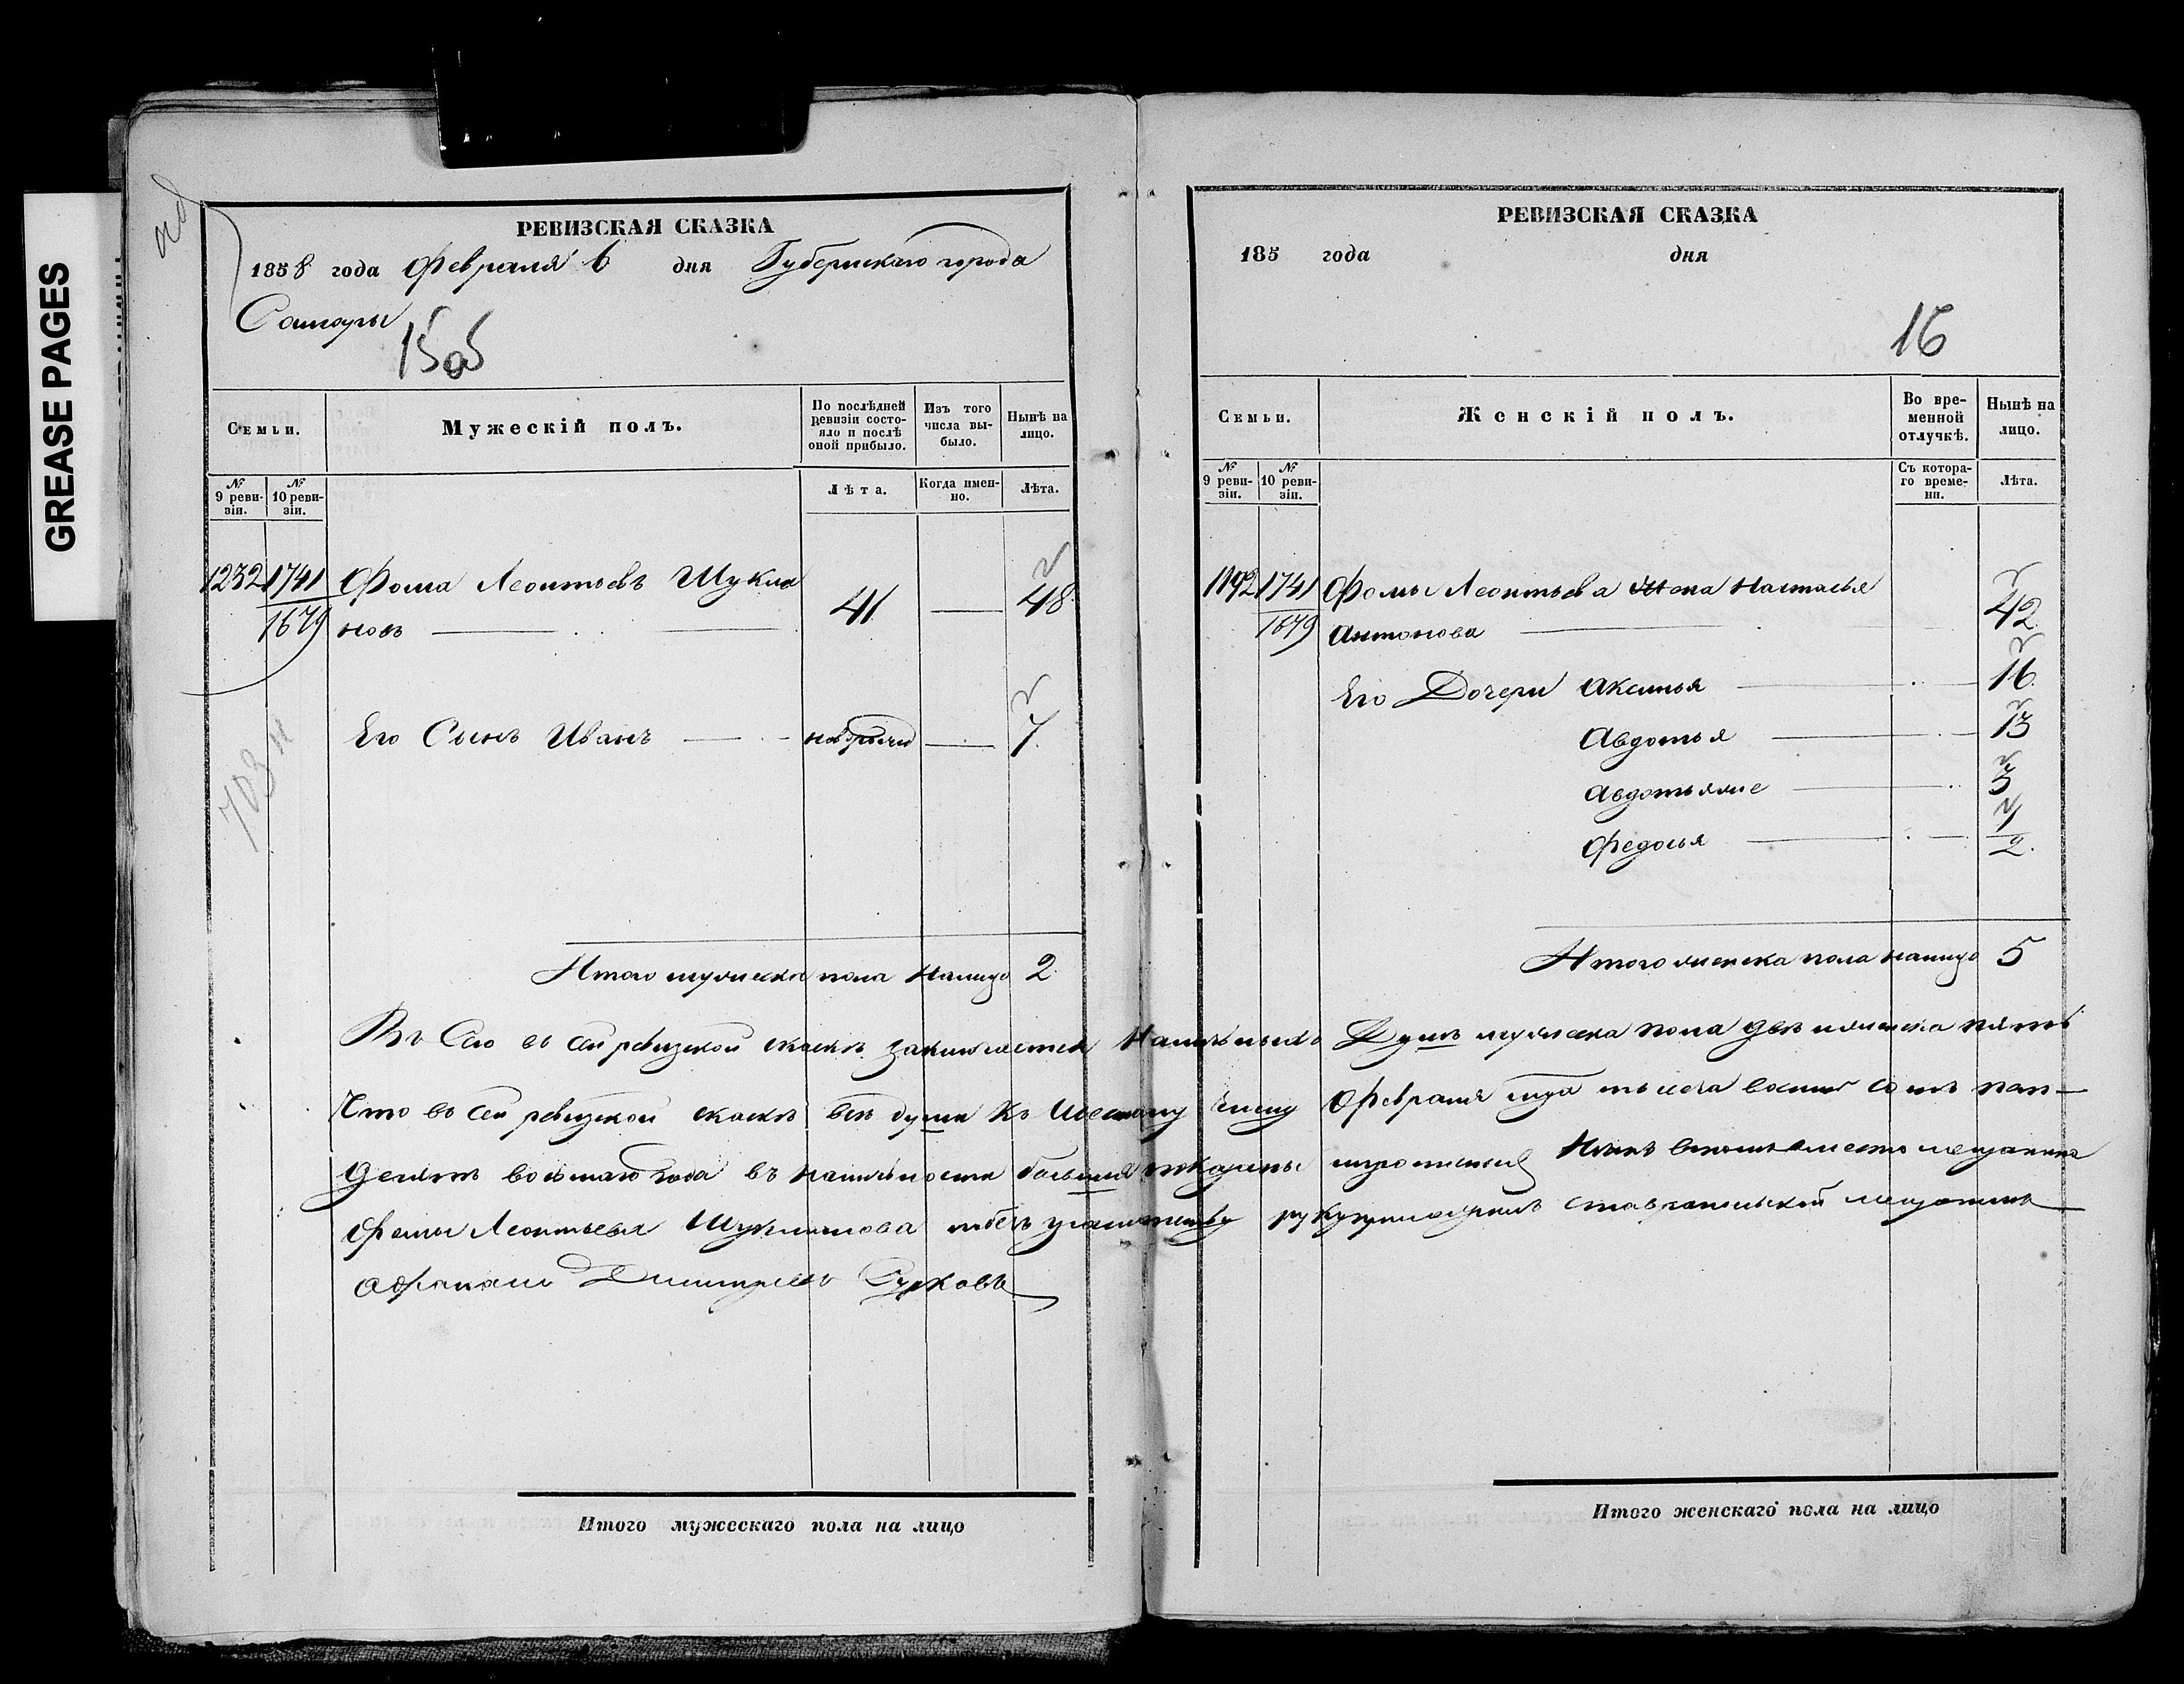 GREASE PAGES
РЕВИЗСКАЯ СКАЗКА
1858 года Февраля 6 дня Губернскаго города
Самары
15об
Семьи.
Мужескій полъ.
По послѣдней ревизіи состояло и послѣ оной прибыло.
Изъ того числа выбыло.
Нынѣ на лицо.
№ 9 ревизіи.
№ 10 ревизіи.
Лѣта.
Когда именно.
Лѣта.
1232 1741 Фома Леонтьевъ Шукли 41 — 48
1679 новъ
Его Сынъ Иванъ — — 7
703
Итого мужеска пола налицо 2
Итого мужескаго пола на лицо
РЕВИЗСКАЯ СКАЗКА
185 года дня
16
Семьи.
Женскій полъ.
Во временной отлучкѣ.
Нынѣ на лицо.
№ 9 ревизіи.
№ 10 ревизіи.
Съ котораго времени.
Лѣта.
1192 1741 Фомы Леонтьева Жена Настасья 42
1679 Антонова
Его Дочери Аксинья 16
Авдотья 13
Авдотья же 3
Федосья 1/2
Итого женска пола налицо 5
Итого женскаго пола на лицо
Въ сей ревизской сказкѣ заключается Наличныхъ Душъ мужеска пола двѣ и женска пять
Что въ сей ревизской сказкѣ всѣ души къ Шестому числу Февраля тысеча восемь сотъ пять
десятъ восьмаго Года въ наличности показаны
Фомы Леонтьева Шуклинова руку приложилъ ставропольской мещанинъ
Дмитріевъ Сурковъ